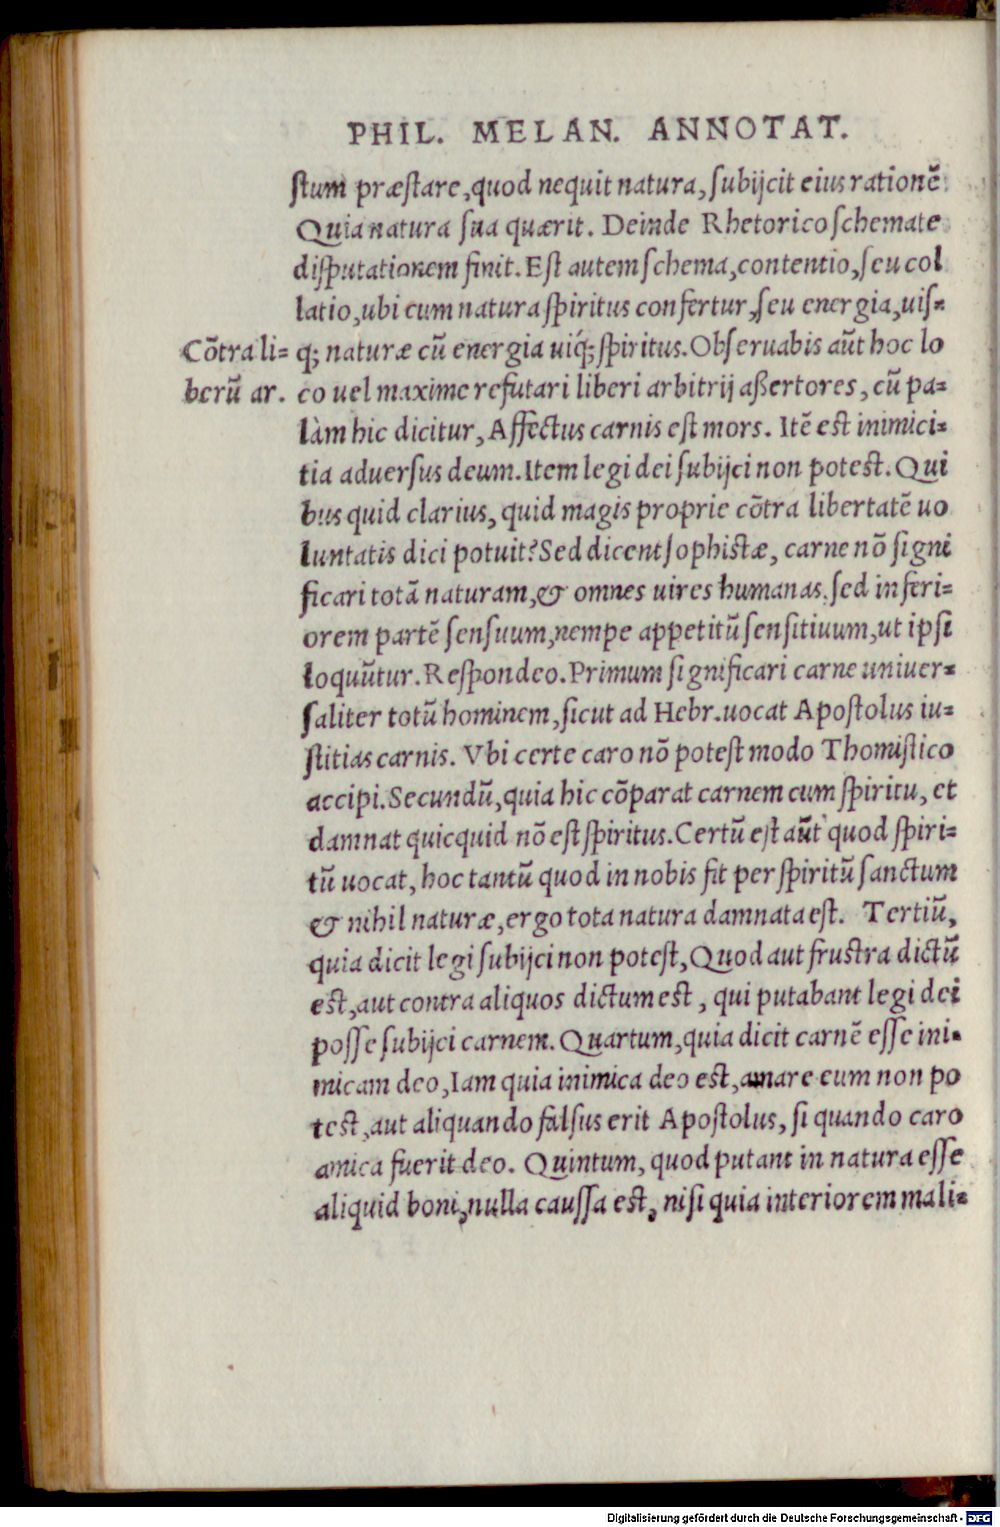 PHIL. MELAN. ANNOTAT.
ſtum præſtare, quod nequit natura, ſubijcit eius rationẽ
Quia natura ſua quærit. Deinde Rhetorico ſchemate
diſputationem finit. Eſt autem ſchema, contentio, ſeu col
latio, ubi cum natura ſpiritus confertur, ſeu energia, uiſ=
Cõtra li=
berũ ar.
q; naturæ cũ energia uiq́; ſpiritus. Obſeruabis aũt hoc lo
co uel maxime refutari liberi arbitrij aßertores, cũ pa=
làm hic dicitur, Affectus carnis eſt mors. Itẽ eſt inimici=
tia aduerſus deum. Item legi dei ſubijci non poteſt. Qui
bus quid clarius, quid magis proprie cõtra libertatẽ uo
luntatis dici potuit? Sed dicent ſophiſtæ, carne nõ ſigni
ficari totã naturam, & omnes uires humanas, ſed inferi=
orem partẽ ſenſuum, nempe appetitũ ſenſitiuum, ut ipſi
loquũtur. Reſpondeo. Primum ſignificari carne uniuer=
ſaliter totũ hominem, ſicut ad Hebr. uocat Apoſtolus iu=
ſtitias carnis. Vbi certe caro nõ poteſt modo Thomiſtico
accipi. Secundũ, quia hic cõparat carnem cum ſpiritu, et
damnat quicquid nõ eſt ſpiritus. Certũ eſt aũt quod ſpiri=
tũ uocat, hoc tantũ quod in nobis fit per ſpiritũ ſanctum
& nihil naturæ, ergo tota natura damnata eſt. Tertiũ,
quia dicit legi ſubijci non poteſt, Quod aut fruſtra dictũ
eſt, aut contra aliquos dictum eſt, qui putabant legi dei
poſſe ſubijci carnem. Quartum, quia dicit carnẽ eſſe ini=
micam deo, Iam quia inimica deo eſt, amare eum non po
teſt, aut aliquando falſus erit Apoſtolus, ſi quando caro
amica fuerit deo. Quintum, quod putant in natura eſſe
aliquid boni, nulla cauſſa eſt, niſi quia interiorem mali=
Digitalisierung gefördert durch die Deutsche Forschungsgemeinschaft - DFG